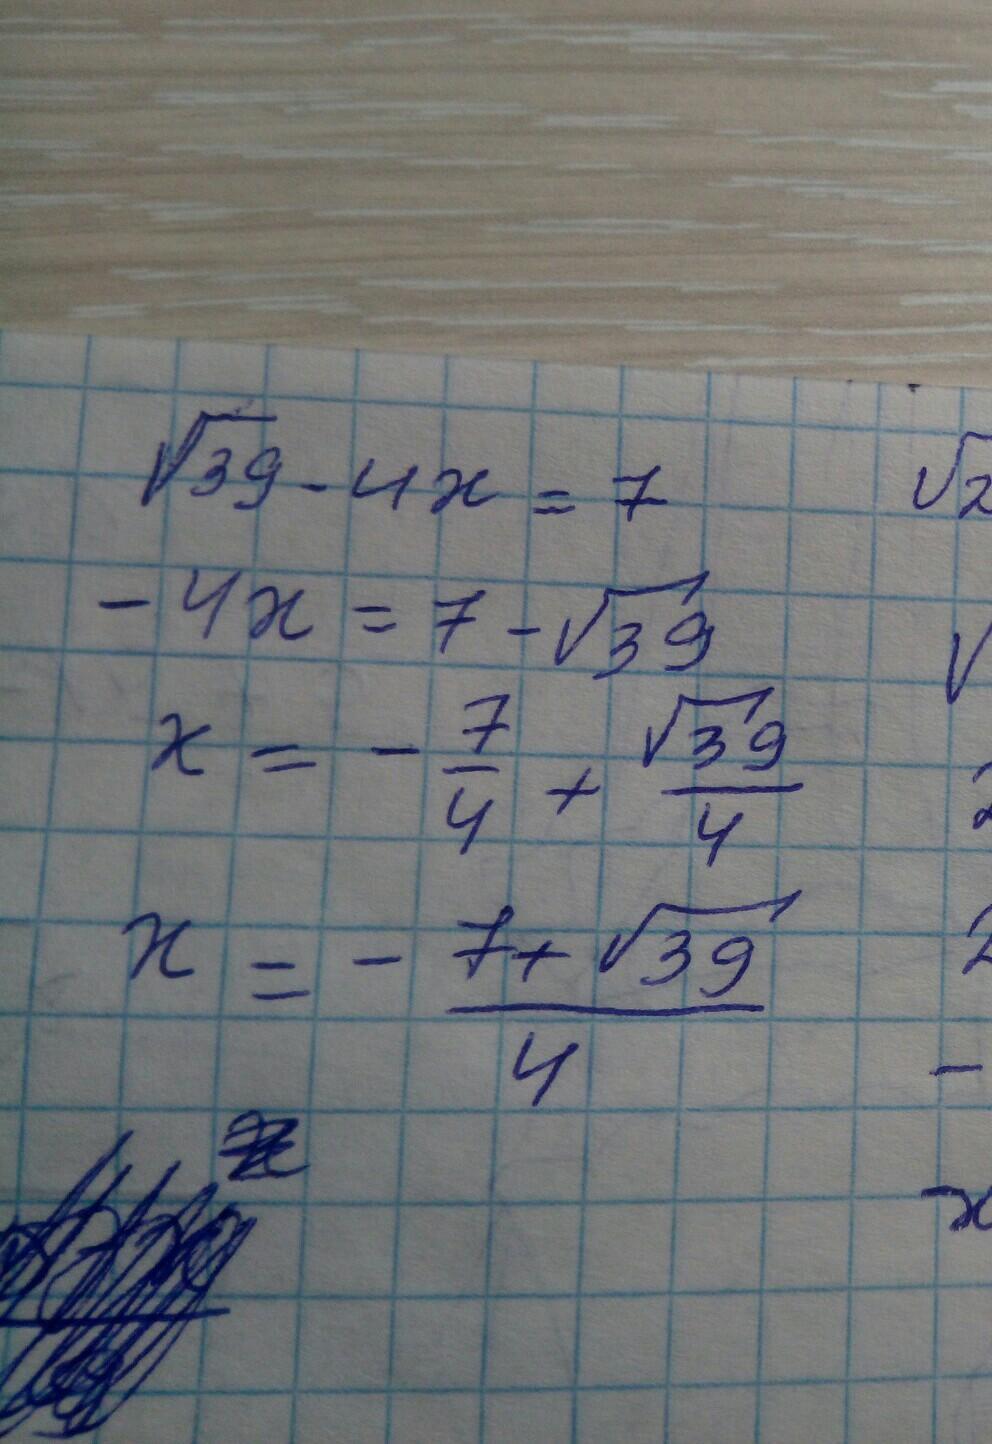 √39 - 4x = 7
√2
- 4x = 7 - √39
√
x = - 7/4 + √39/4
2
x = - (7 + √39)/4
2
-
x
x